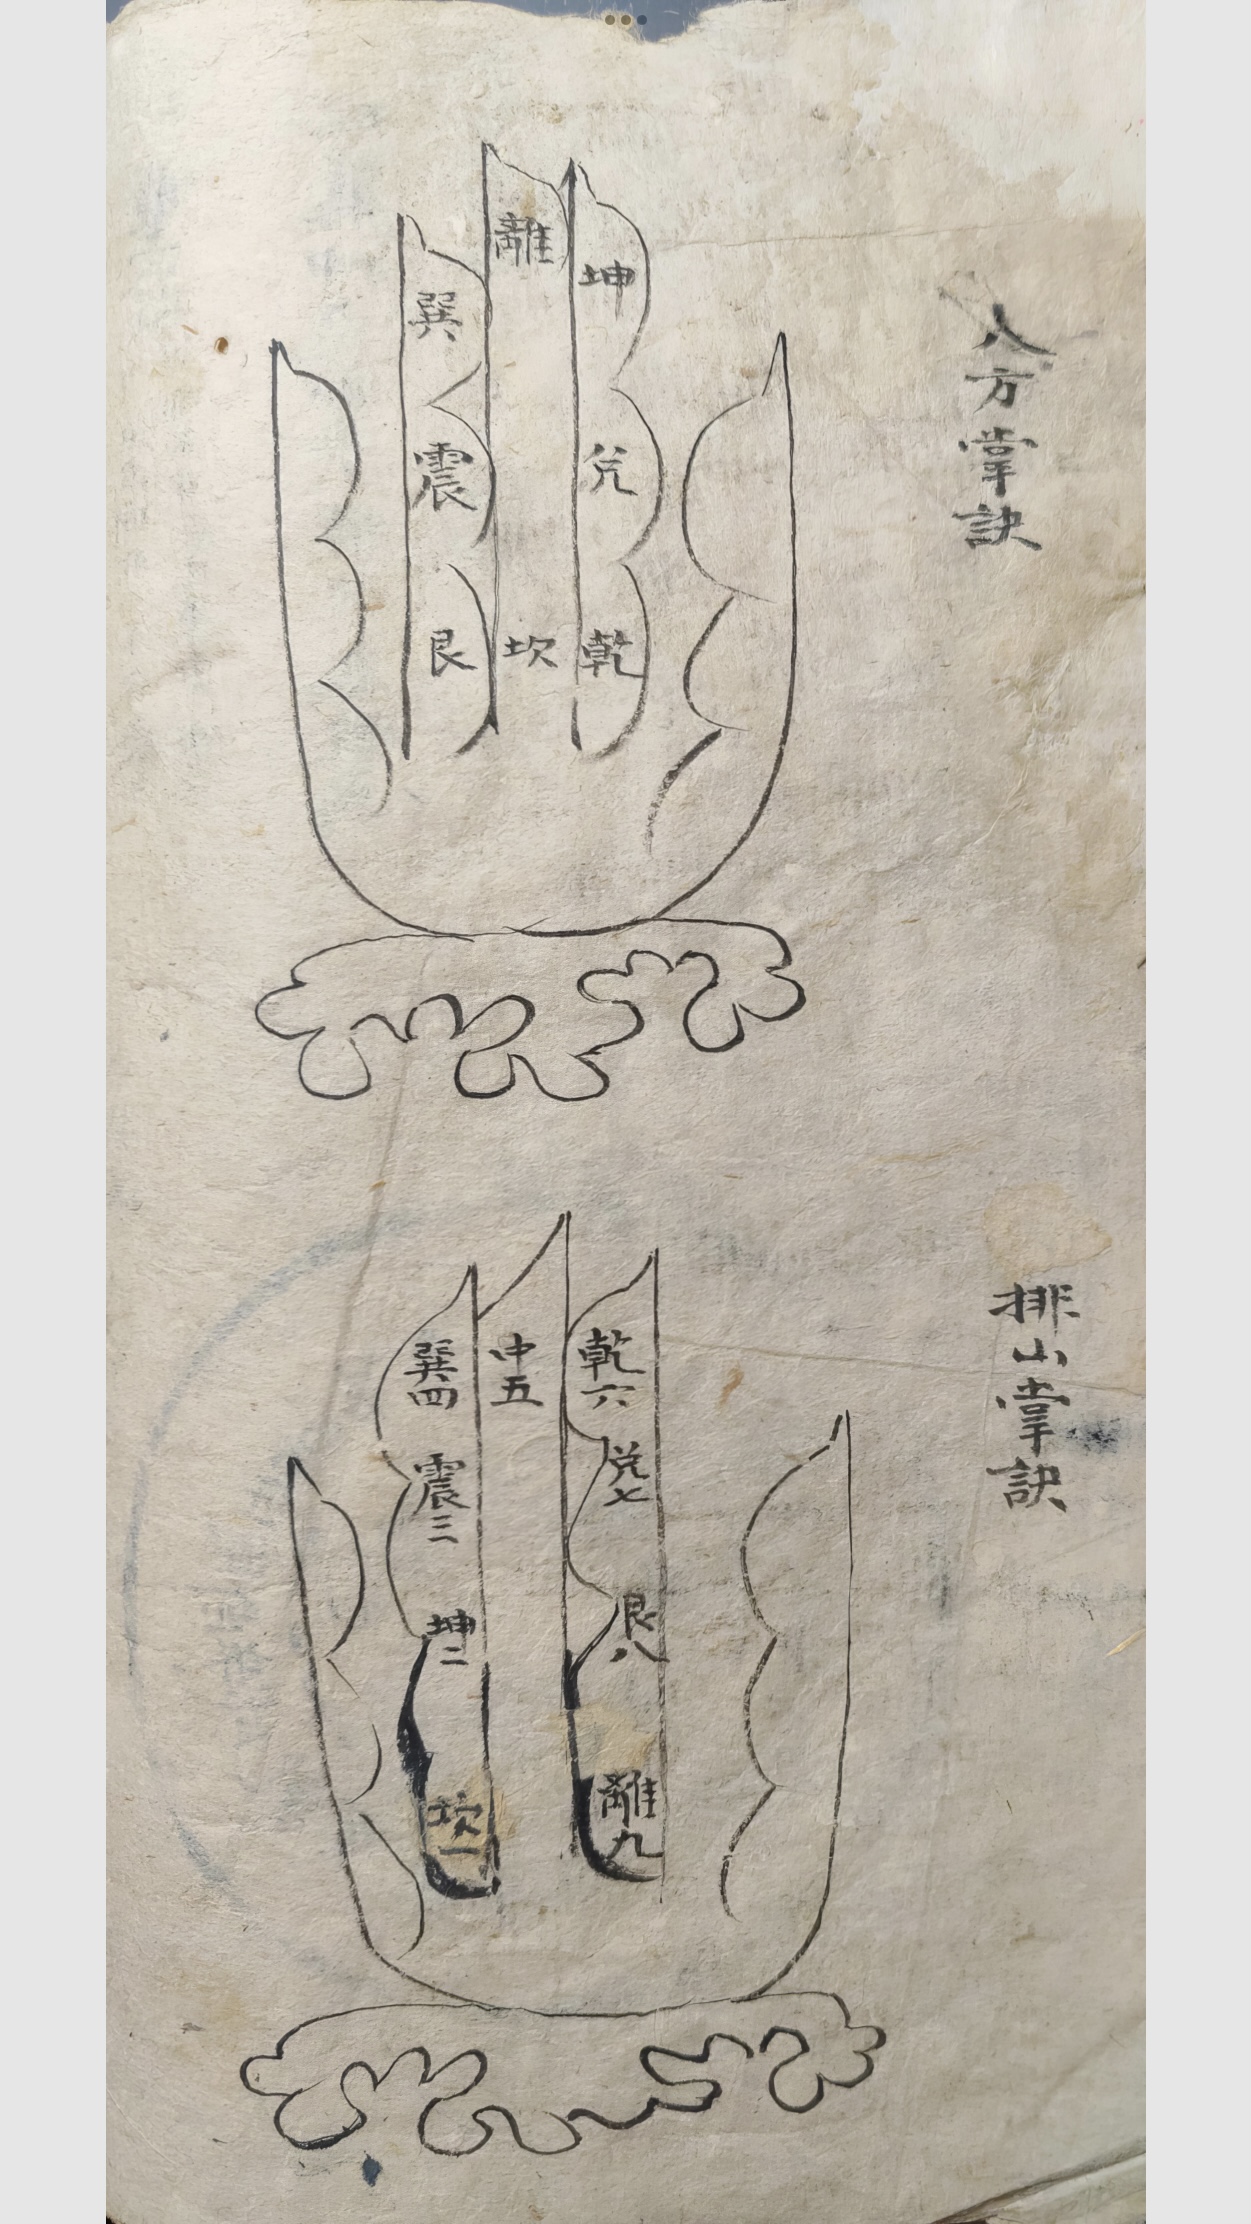 八方掌訣
離
坤
巽
兌
震
乾
坎
艮
排山掌訣
乾六
中五
巽四
兌七
震三
艮八
坤二
離九
坎一